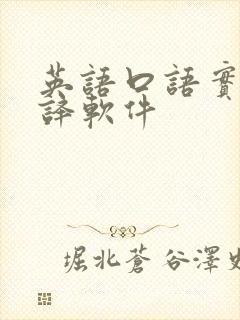 英語口語實
譯軟件
堀北蒼谷澤